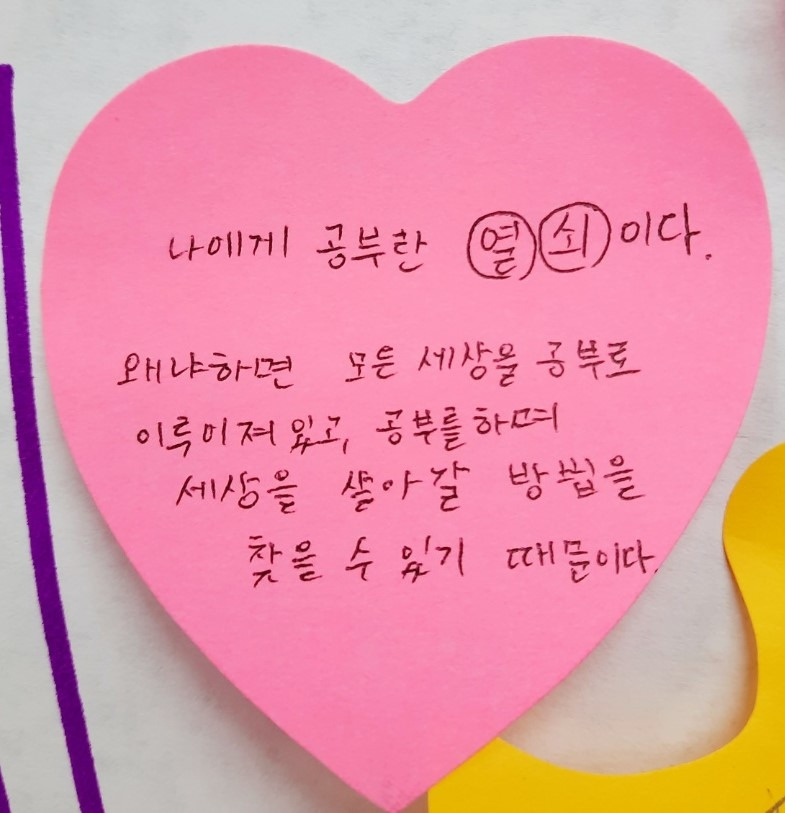 나에게 공부란 열쇠이다.
왜냐하면 모든 세상을 공부로
이루어져 있고, 공부를하며
세상을 살아갈 방법을
찾을 수 있기 때문이다.